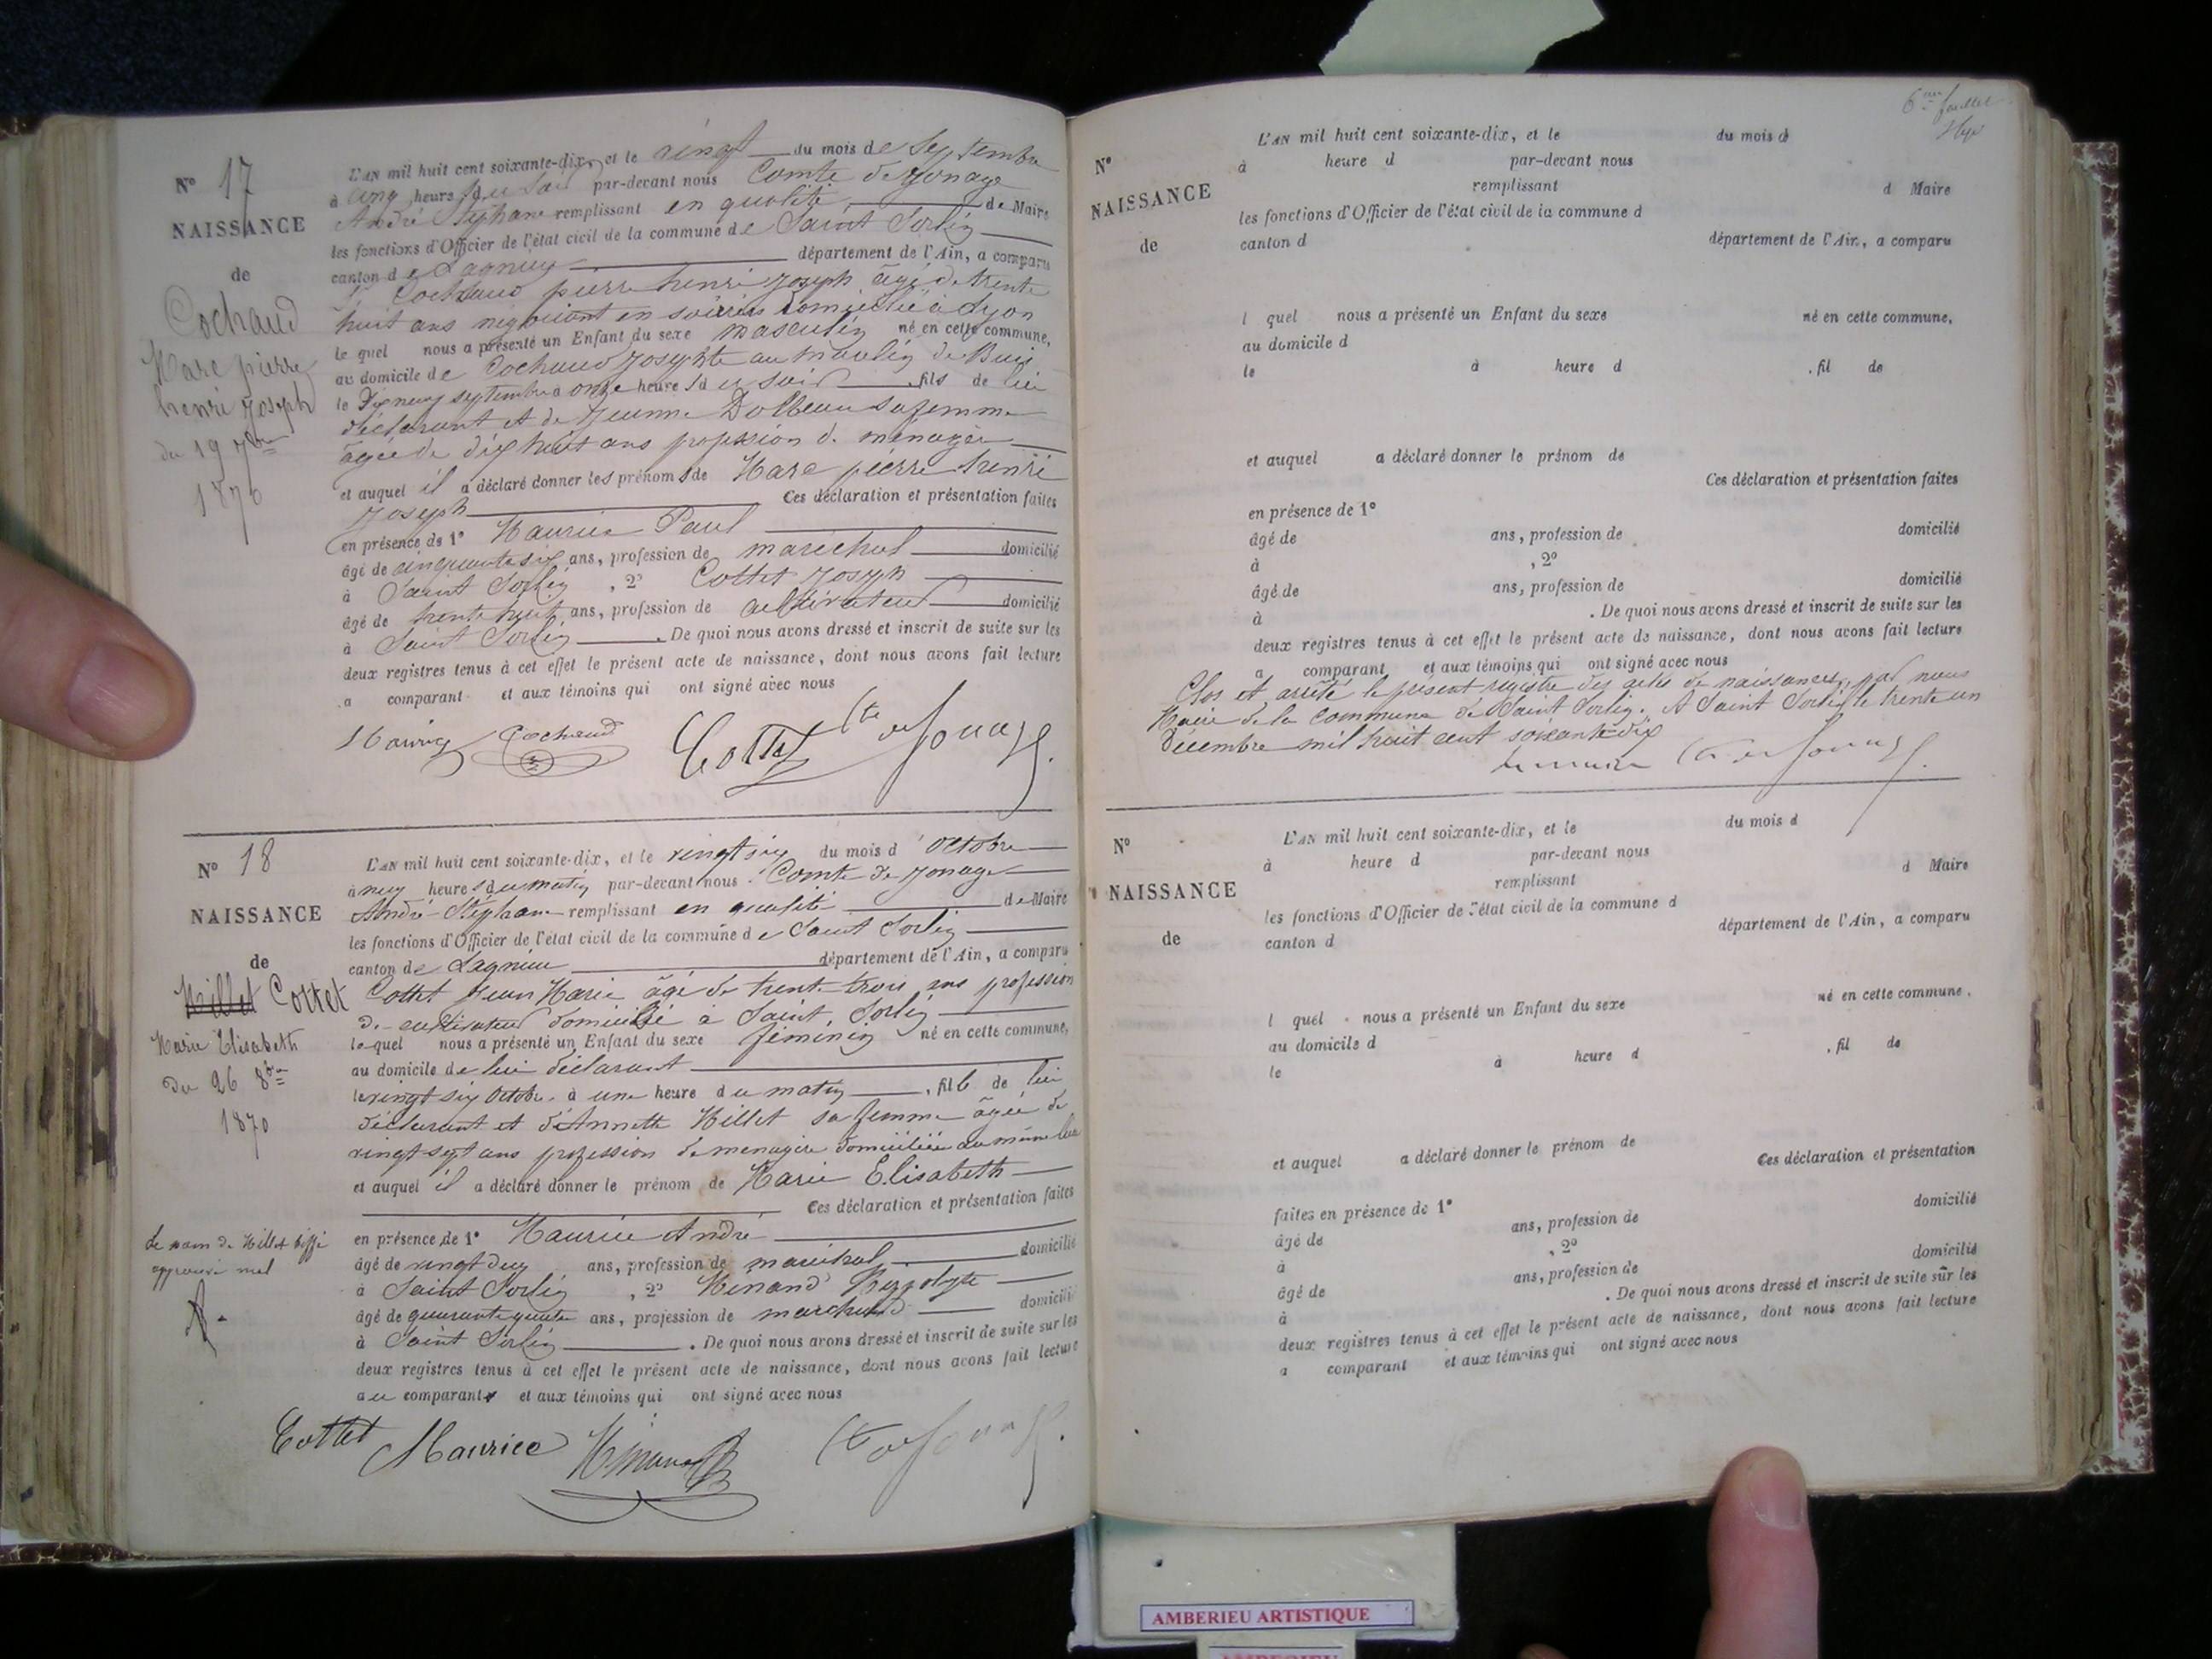 N° 17
NAISSANCE
de
Cochaud
Marc pierre
henri Joseph
du 19 7bre
1870
L'AN mil huit cent soixante-dix, et le vingt du mois de Septembre
à cinq heures du soir par-devant nous Comte de Jonage
André Stéphane remplissant en qualité de Maire
les fonctions d'Officier de l'état civil de la commune de Saint Sorlin
canton de Lagnieu département de l'Ain, a comparu
Cochaud pierre henri Joseph âgé de trente
huit ans négociant en soieries domicilié à Lyon
le quel nous a présenté un Enfant du sexe masculin né en cette commune,
au domicile de Cochaud Josephte au moulin de Buis
le Dix neuf septembre à onze heures du soir , fils de lui
déclarant et de Jeanne Dolbeau sa femme
âgée de dix huit ans profession de ménagère
et auquel il a déclaré donner les prénoms de Marc pierre henri
Joseph Ces déclaration et présentation faites
en présence de 1° Maurice Paul
âgé de cinquante six ans, profession de maréchal domicilié
à Saint Sorlin , 2° Cottet Joseph
âgé de trente huit ans, profession de cultivateur domicilié
à Saint Sorlin . De quoi nous avons dressé et inscrit de suite sur les
deux registres tenus à cet effet le présent acte de naissance, dont nous avons fait lecture
a comparant et aux témoins qui ont signé avec nous
Maurice Cochaud Cottet Cte de Jonage
N° 18
NAISSANCE
de
Millet Cottet
Marie Elisabeth
du 26 8bre
1870
L'AN mil huit cent soixante-dix, et le vingt six du mois d'octobre
à neuf heures du matin par-devant nous Comte de Jonage
André Stéphane remplissant en qualité de Maire
les fonctions d'Officier de l'état civil de la commune de Saint Sorlin
canton de Lagnieu département de l'Ain, a comparu
Cottet Jean Marie âgé de trente trois ans profession
de cultivateur domicilié à Saint Sorlin
lequel nous a présenté un Enfant du sexe féminin né en cette commune,
au domicile de lui déclarant
le vingt six octobre à une heure du matin , fille de lui
déclarant et d'Annette Millet sa femme âgée de
vingt sept ans profession de ménagère domiciliée au même lieu
et auquel il a déclaré donner le prénom de Marie Elisabeth
Ces déclaration et présentation faites
en présence de 1° Maurice André
âgé de vingt deux ans, profession de maréchal domicilié
à Saint Sorlin , 2° Minand Hippolyte
âgé de quarante quatre ans, profession de marchand domicilié
à Saint Sorlin . De quoi nous avons dressé et inscrit de suite sur les
deux registres tenus à cet effet le présent acte de naissance, dont nous avons fait lecture
au comparant et aux témoins qui ont signé avec nous
le nom de Millet biffé
approuvé nul
Cottet Maurice Minand Cte de Jonage
6me feuillet
N°
NAISSANCE
de
L'AN mil huit cent soixante-dix, et le du mois d
à heure d par-devant nous
remplissant d Maire
les fonctions d'Officier de l'état civil de la commune d
canton d département de l'Ain, a comparu
l quel nous a présenté un Enfant du sexe né en cette commune,
au domicile d
le à heure d , fil de
et auquel a déclaré donner le prénom de
Ces déclaration et présentation faites
en présence de 1°
âgé de ans, profession de domicilié
à , 2°
âgé de ans, profession de domicilié
à . De quoi nous avons dressé et inscrit de suite sur les
deux registres tenus à cet effet le présent acte de naissance, dont nous avons fait lecture
a comparant et aux témoins qui ont signé avec nous
Clos et arrêté le présent registre des actes de naissances, par nous
Maire de la commune de Saint Sorlin. A Saint Sorlin le trente un
Décembre mil huit cent soixante dix
Cte de Jonage
N°
NAISSANCE
de
L'AN mil huit cent soixante-dix, et le du mois d
à heure d par-devant nous
remplissant d Maire
les fonctions d'Officier de l'état civil de la commune d
canton d département de l'Ain, a comparu
l quel nous a présenté un Enfant du sexe né en cette commune,
au domicile d
le à heure d , fil de
et auquel a déclaré donner le prénom de
Ces déclaration et présentation
faites en présence de 1°
âgé de ans, profession de domicilié
à , 2°
âgé de ans, profession de domicilié
à . De quoi nous avons dressé et inscrit de suite sur les
deux registres tenus à cet effet le présent acte de naissance, dont nous avons fait lecture
a comparant et aux témoins qui ont signé avec nous
AMBERIEU ARTISTIQUE
AMBERIEU